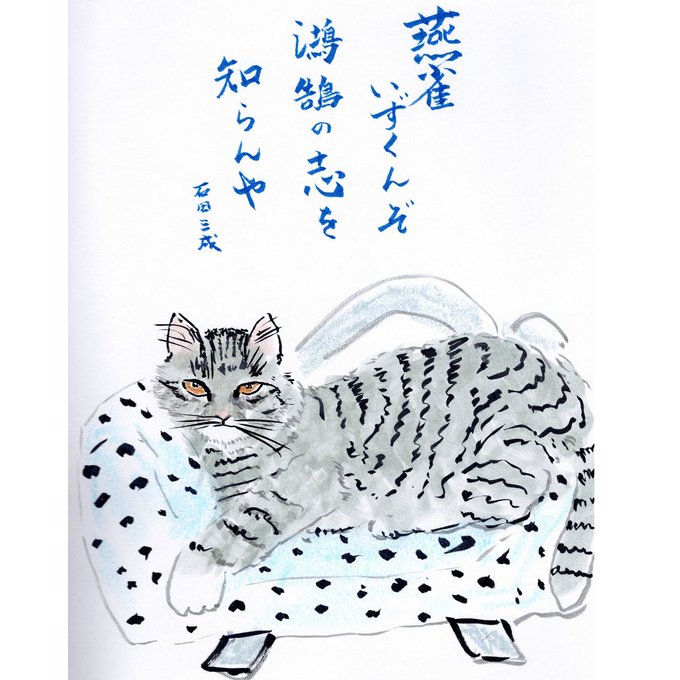 燕雀
いずくんぞ
鴻鵠の志を
知らんや
石田三成